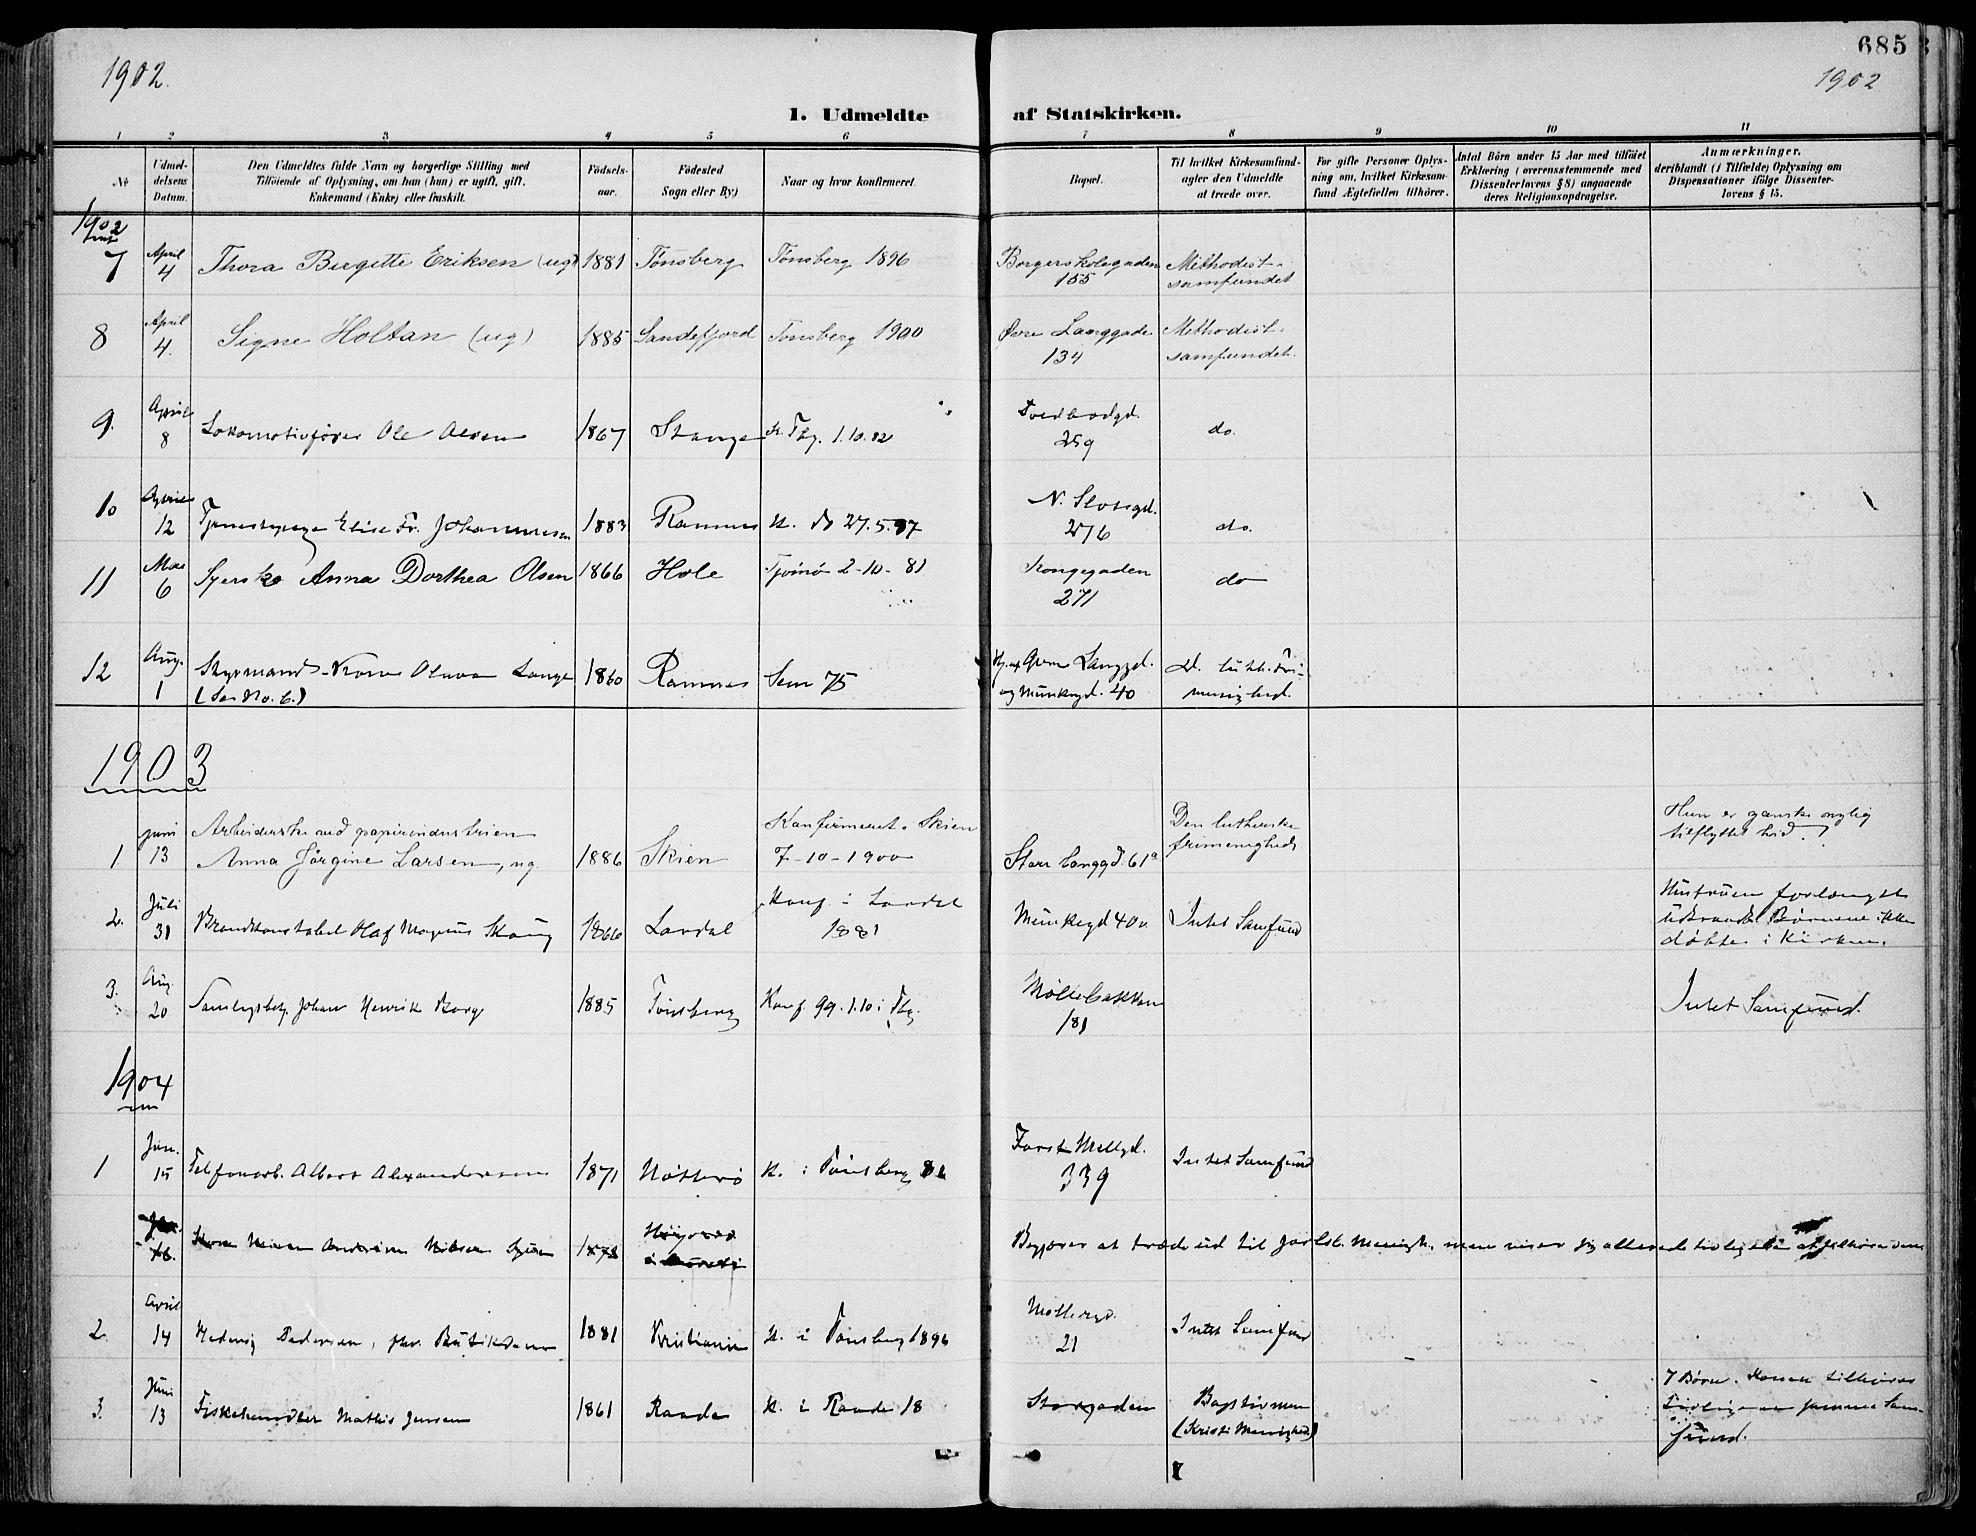 1902.
685
1902
1. Udmeldte af Statskirken.
1 2 3 4 5 6 7 8 9 10 11
No
Udmel-
delsens
Datum.
Den Udmeldtes fulde Navn og borgerlige Stilling med
Tilføiende af Oplysning, om han (hun) er ugift, gift,
Enkemand (Enke) eller fraskilt.
Födsels-
aar.
Födested
Sogn eller By)
Naar og hvor konfirmeret.
Bopæl.
Til hvilket Kirkesamfund
agter den Udmeldte
at træde over.
For gifte Personer Oplys-
ning om, hvilket Kirkesam-
fund Ægtefællen tilhörer.
Antal Börn under 15 Aar med tilföiet
Erklæring (overensstemmende med
Dissenterlovens § 8) angaaende
deres Religionsopdragelse.
Anmærkninger,
deriblandt (i Tilfælde) Oplysning om
Dispensationer ifölge Dissenter-
lovens § 15.
1902
7 April 4 Thora Birgitte Eriksen (ug) 1881 Tönsberg Tönsberg 1896 Borgerskolegaden 155 Methodist-samfundet
8 April 4. Signe Holtan (ug) 1885 Sandefjord Tönsberg 1900 Øvre Langgade 134 Methodist-samfundet.
9. April 8 Lokomotivfører Ole Olsen 1867 Stange K. Tbg. 1.10.82 259 do.
10 April 12 Tjenestepige Elise Fr. Johannesen 1883 Ramnes K. do 27.5.97 N. Slotsgd. 276 do.
11 Mai 6 Syerske Anna Dorthea Olsen 1866 Hole Tjömö 2-10-81 Kongegaden 271 do
12 Aug. 1 Styrmands-Kone Olava Lange 1860 Ramnes Sem 75 Langgd.
(Se No. 6.) og Munkegd. 40 luth. Fri-menighed.
1903
1 Juni 13 Arbeiderske ved papirindustrien
Anna Jörgine Larsen, ug. 1886 Skien Konfirmeret i Skien
7-10-1900 Store Langgd. 61a Den lutherske
frimenigheds Hun er ganske nylig
tilflyttet hid.
2. Juli 31 Brandkonstabel Olaf Magnus Skaug 1866 Lardal Konf. i Lardal
1881 Munkegd 40 Intet Samfund Hustruen forlængst
udtraadt Børnene ikke
døbte i Kirken.
3. Aug. 20 Johan Henrik Borg 1885 Tönsberg Konf. 99. 1.10 i Tbg. Möllebakken
181 Intet Samfund.
1904
1 Jan. 15 Telefonarb. Albert Alexandersen 1871 Nötterö K. i Tönsberg Møllegd.
339 Intet Samfund
Jan. 16. 1873 Begjærer at træde ud til Jarlsb. Menigh. men viser sig allerede tidligere at tilhøre den
2. April 14 Hedvig Pedersen, Butikdame 1881 Kristiania K. i Tönsberg 1896 Møllergd.
21 Intet Samfund
3. Juni 13 Fiskehandler Mathis Jensen 1861 Raade K. i Raade 18 Storgaden Baptisternes
(Kristi Menighed) 7 Børn. Konen tilhører
samme Sam-
fund.